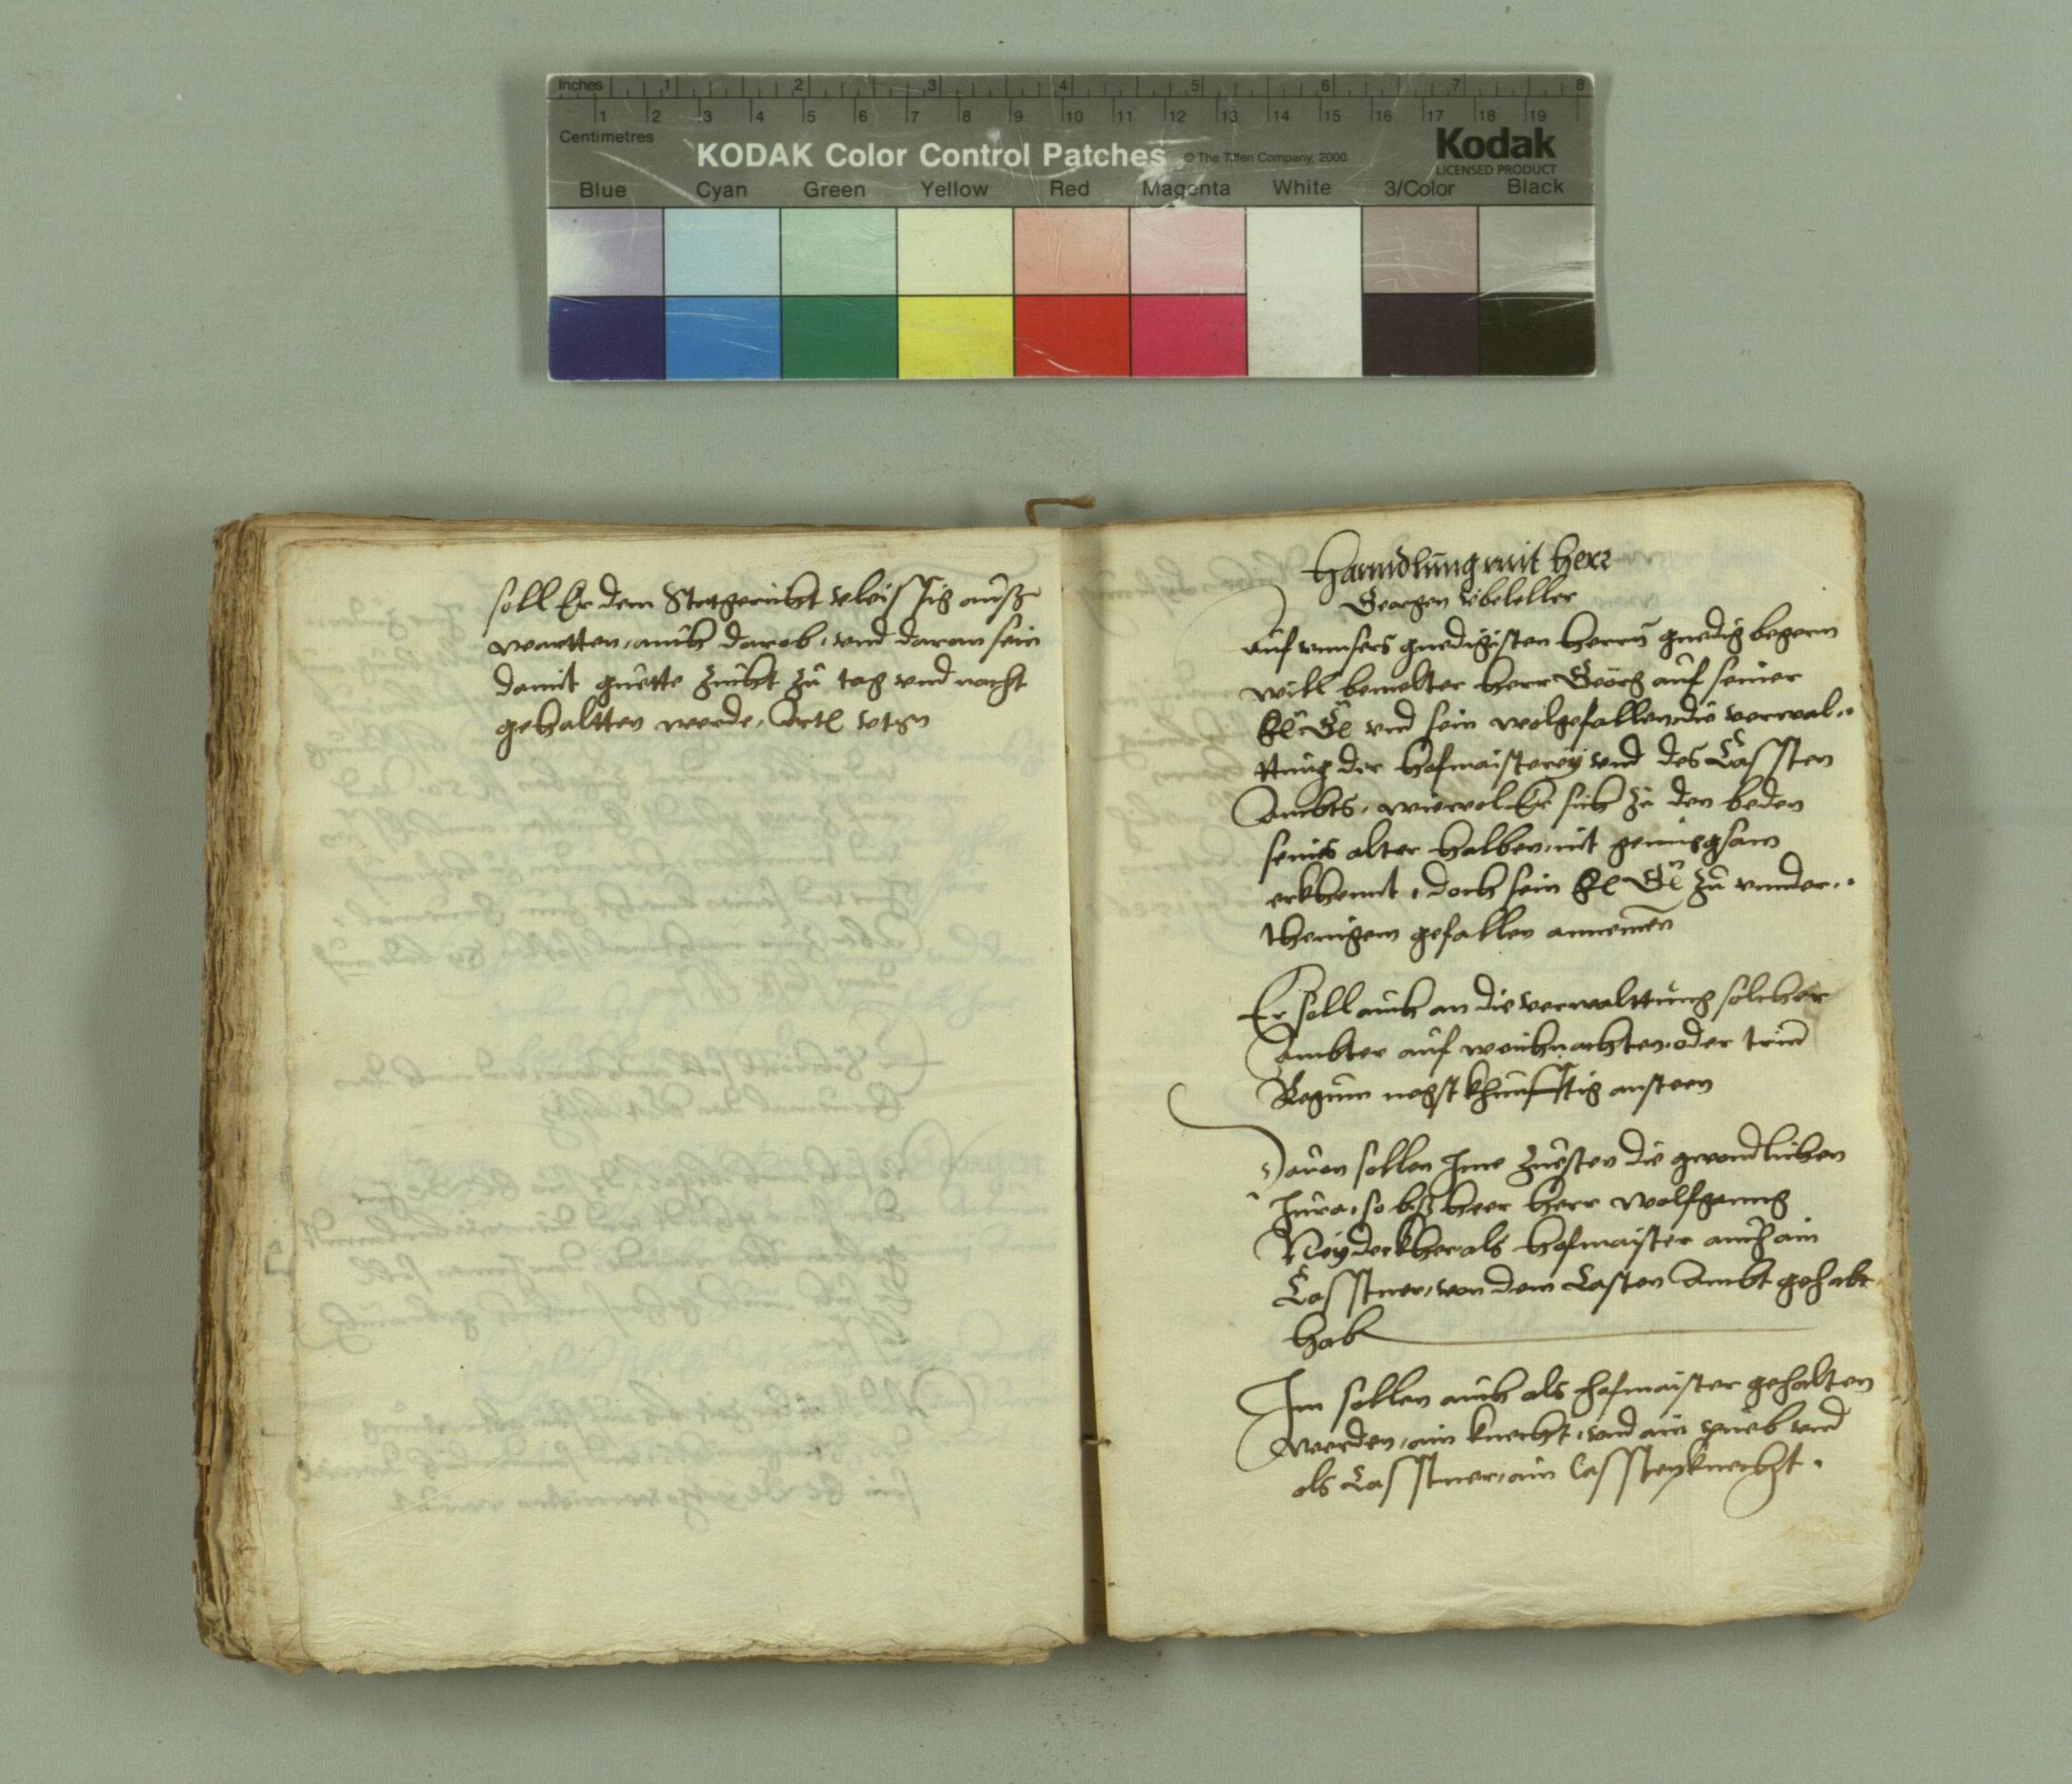 Inches 1 2 3 4 5 6 7 8
1 2 3 4 5 6 7 8 9 10 11 12 13 14 15 16 17 18 19
Centimetres
KODAK Color Control Patches © The Tiffen Company, 2000 Kodak
LICENSED PRODUCT
Blue Cyan Green Yellow Red Magenta White 3/Color Black
soll Er dem Statgericht vleissig ausz
wartten, auch darob, vnd daran sein
damit guette zucht zu tag vnd nacht
gehaltten werde,
Hanndlung mit herr
Georgen
Auf vnnsers gnedigisten herrn gnedig begern
will bemelter herr Georg auf seiner
vnd sein wolgefallen die verwal„
ttung der hofmaisterey vnd des Casssten
Ambts, wiewol Er sich zu den beden
seines alter halben nit genuegsam
erkhennt, doch sein zu vnnder„
thenigem gefallen annemen
Er soll auch an die verwalttung solcher
Ambter auf weichnachten oder trium
Regum negst khunfftig ansteen
Dauon sollen Ime zuesten die gwondlichen
Jura, so bisheer herr wolfganng
Neydeckher als hofmaister auch ain
Casstner, von dem Casten Ambt gehabt
hab
Im sollen auch als hofmaister gehalten
werden, ain knecht, vnd ain pueb vnd
als Casstner, ain Casstenknecht.